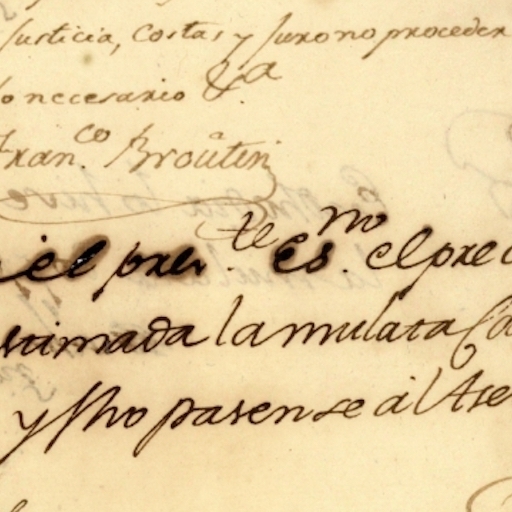 Justicia, Costas y Juro no proceder
necesario &.a
Fran.co Broûtin
el pres.te es.no el prec
estimada la mulata Ca
y fho pasense al Ase